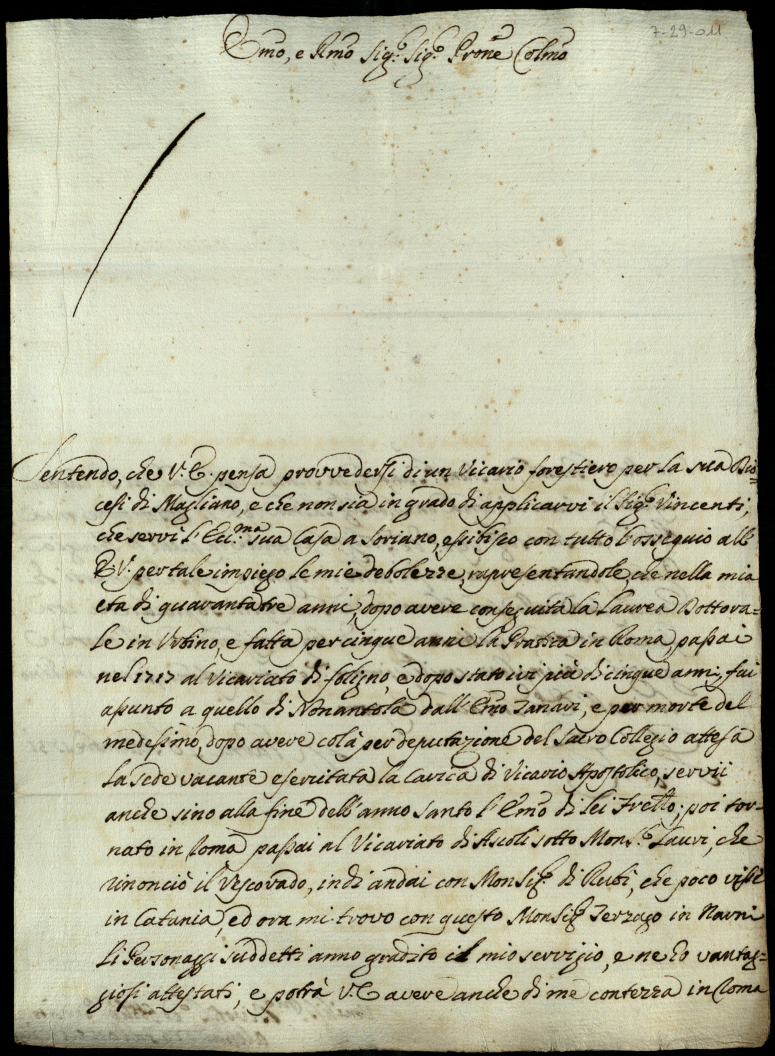 7-29-011
Emo, e Rmo Sig.r Sig.r Prone Colmo
Sentendo, che V.E. pensa provvedersi di un Vicario forestiero per la sua Dio=
cesi di Magliano, e che non sia in grado di applicarvi il Sig.r Vincenti,
che servì l'Ecc.ma sua Casa a Soriano, esibisco con tutto l'ossequio all'
E.V. per tale impiego le mie debolezze, rapresentandole, che nella mia
età di quarantatre anni, dopo avere conseguita la Laurea Dottora=
le in Urbino, e fatta per cinque anni la Pratica in Roma, passai
nel 1717 al Vicariato di foligno, e dopo stato ivi più di cinque anni, fui
assunto a quello di Nonantola dall'Emo Tanari, e per morte del
medesimo, dopo avere colà per deputazione del Sacro Collegio attesa
la sede vacante esercitata la Carica di Vicario Apostolico, servii
anche sino alla fine dell'anno santo l'Emo di lei frello; poi tor=
nato in Roma passai al Vicariato di Ascoli sotto Mons.r Lauri, che
rinonciò il Vescovado, indi andai con Monsig.r di Rubi, che poco visse
in Catania, ed ora mi trovo con questo Monsig.r Terzago in Narni
Li Personaggi suddetti anno gradito il mio servizio, e ne ho vantag=
giosi attestati, e potrà V.E. avere anche di me contezza in Roma